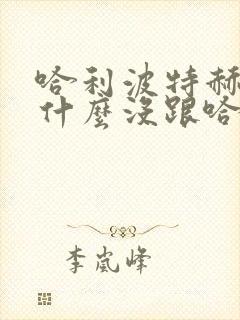 哈利波特赫
什麼沒跟哈
李嵐峰